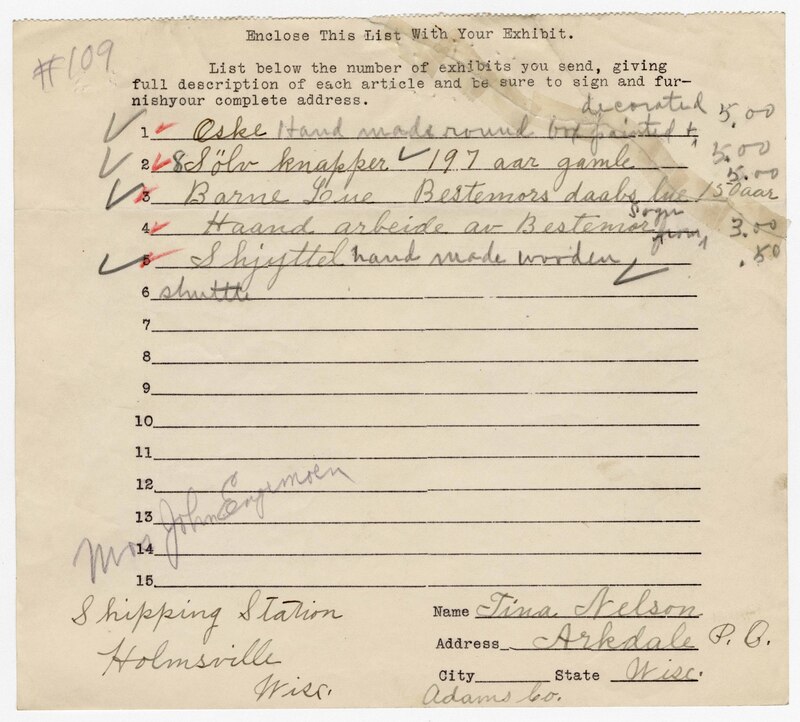 #109
Enclose This List With Your Exhibit.
List below the number of exhibits you send, giving
full description of each article and be sure to sign and fur-
nishyour complete address.
decorated
1 Oske Hand made round box painted + 5.00
2 8 Sölv knapper 197 aar gamle 5.00
5.00
3 Barne Lue Bestemors daabs lue 150 aar
Sogn
4 Haand arbeide av Bestemor from 3.00
5 Shjyttel hand made wooden .50
6 shuttle
7
8
9
10
11
12
13
14
15
Mrs John
Shipping Station
Holmsville
Wisc.
Name Tina Nelson
Address Arkdale P. O.
City State Wisc.
Adams Co.